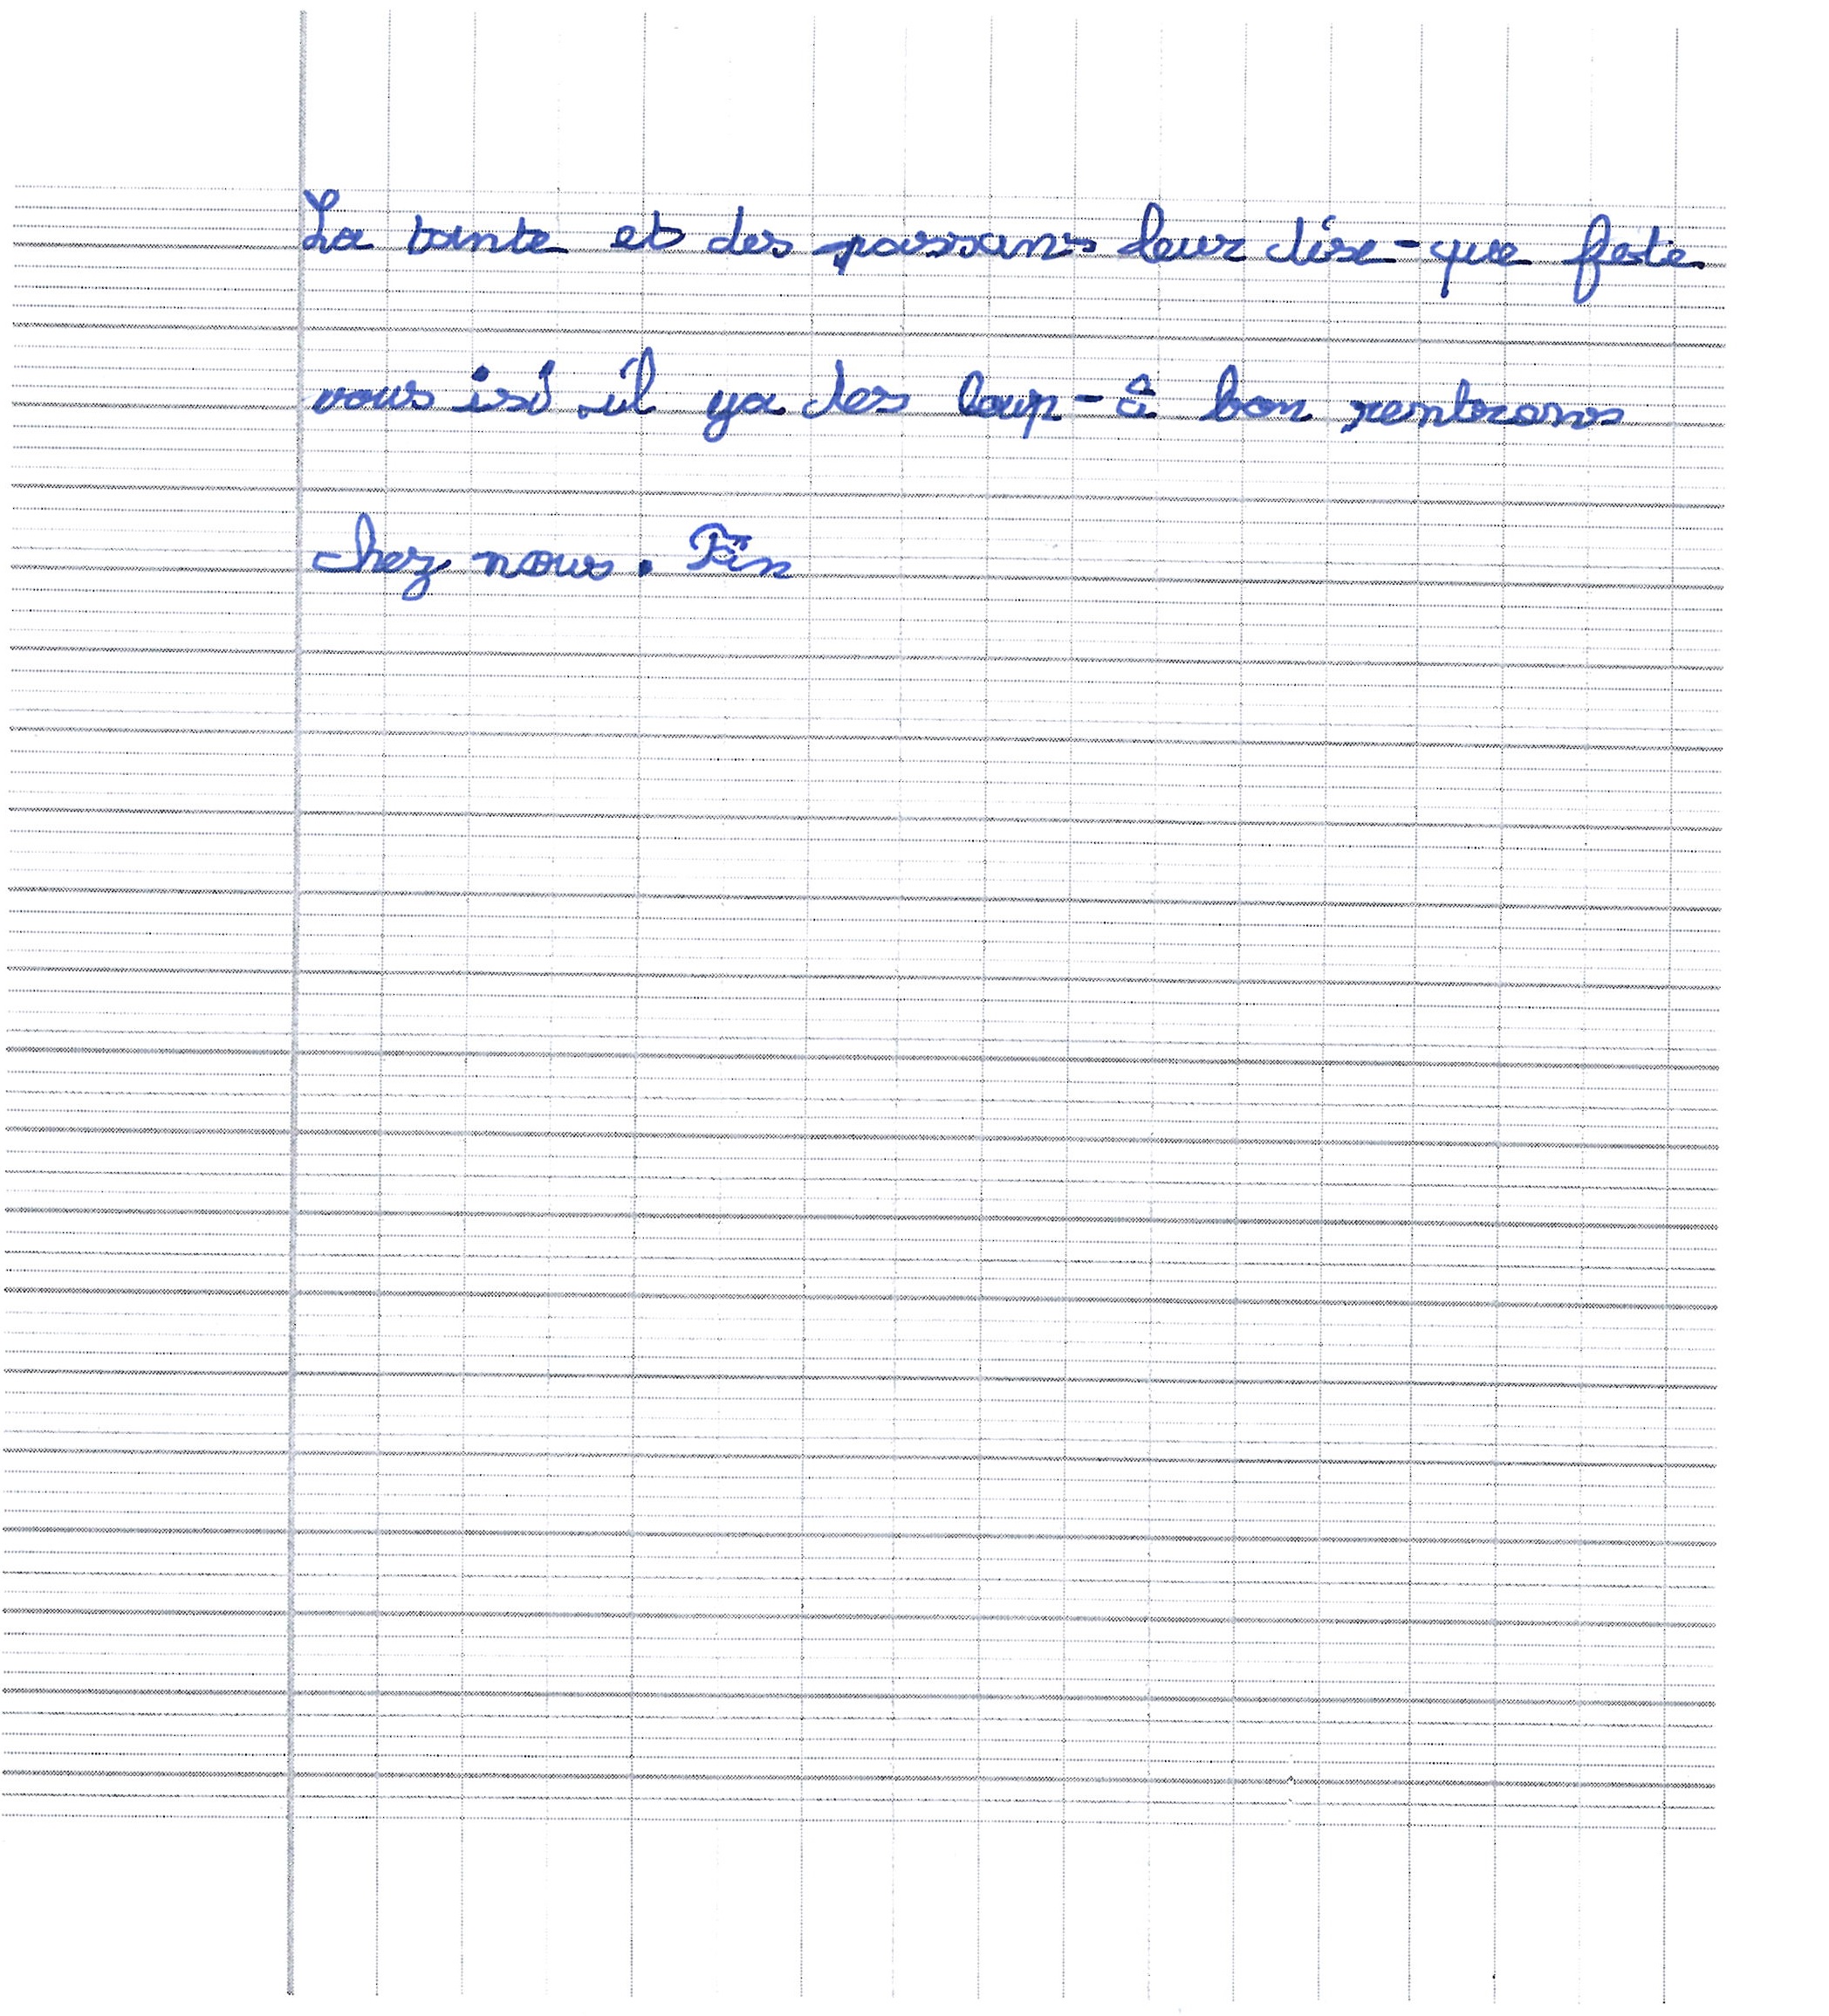 La tante et des passans leur dise - que fete
vous isi il ya des loup - â bon rentrons
chez nous. Fin